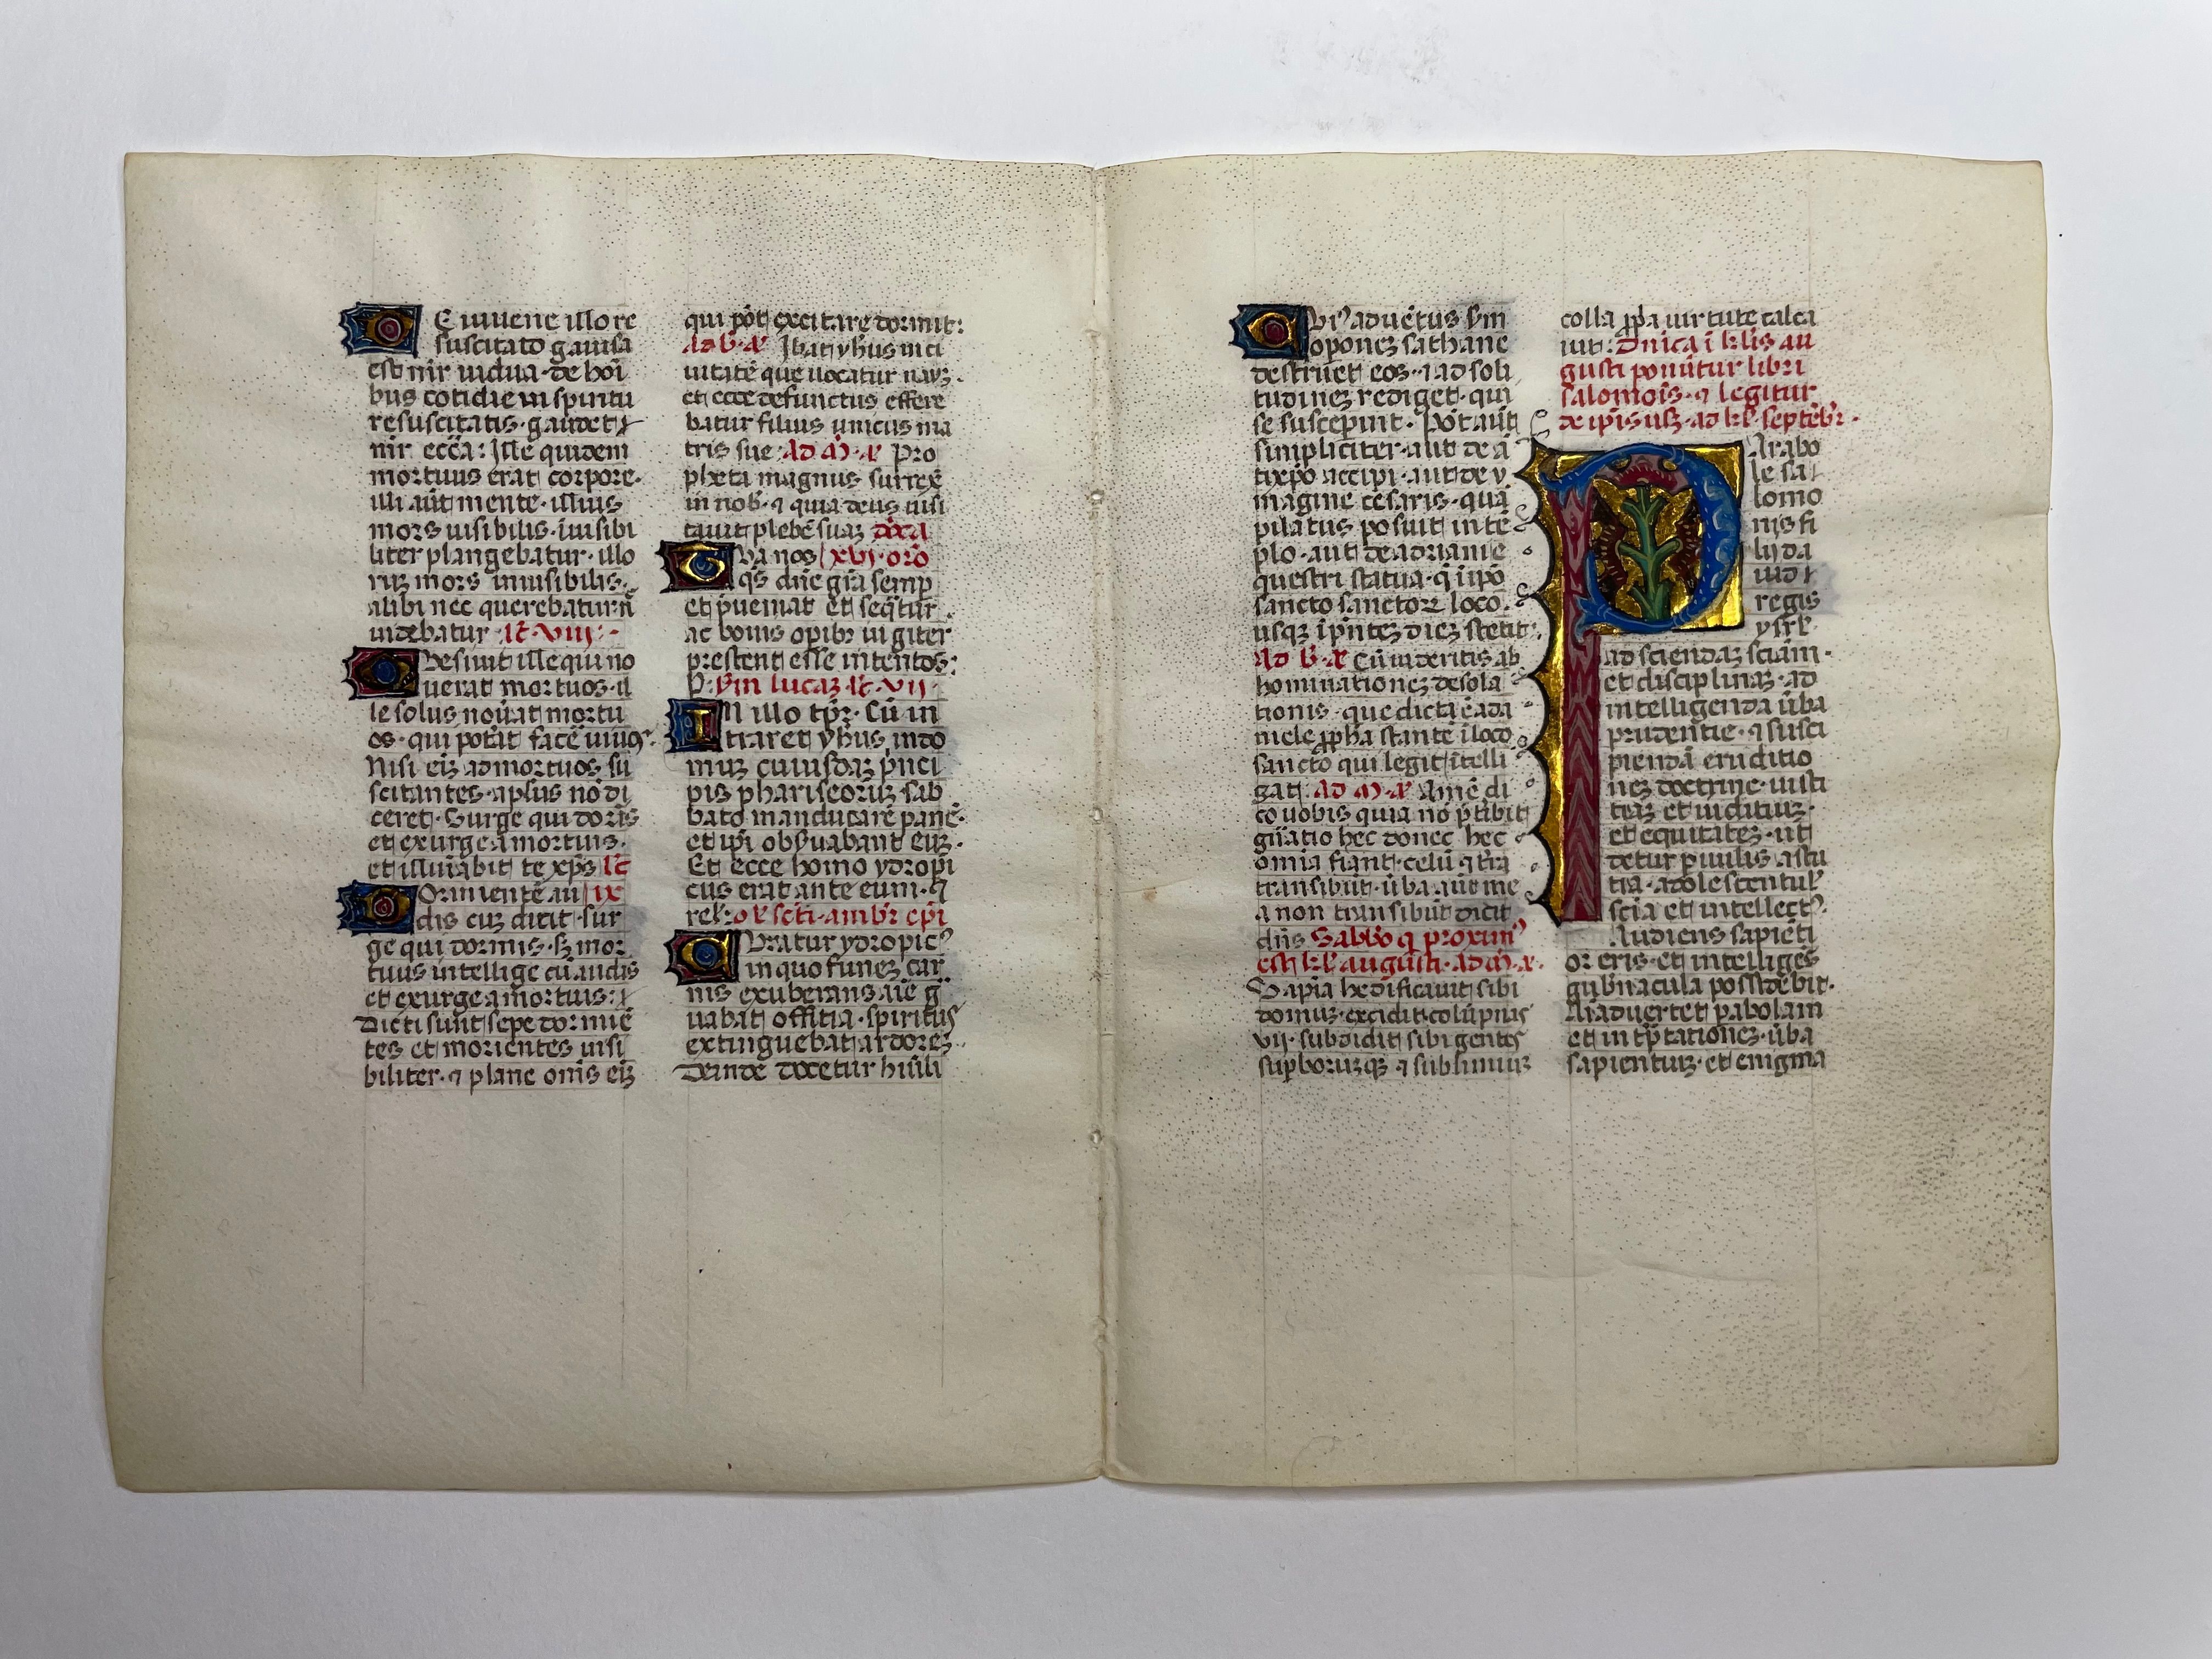 E iuuene illo re
suscitato gauisa
est mr̄ uidua · de hoī
bus cotidie in spiritu
resuscitatis · gaudet
mr̄ ecc̄a: Ille quidem
mortuus erat corpore ·
illi aūt mente · illius
mors uisibilis · īuisibi
liter plangebatur · illo
ruꝫ mors inuisibilis
alibi nec querebatur n̄
uidebatur · lc̄ · viij · -
Qvesiuit ille qui no
uerat mortuos · il
le solus nou̓at mortu
os · qui pot̓at facē uiuoꝰ ·
Nisi eīꝫ ad mortuos su
scitantes · aplūs nō di
ceret · Surge qui dormis
et exurge a mortuis ·
et illūabit te xp̄s lc̄
Dormientē au ix
dis cuꝫ dicit · sur
ge qui dormis · sꝫ mor
tuus intellige cū audis
et exurge a mortuis:
dicti sunt sepe dormiē
tes et morientes uisi
biliter · ⁊ plane om̄s eīꝫ
qui pōt excitare dormit:
ad b · a͞ Ibat yhus in ci
uitatē que uocatur nayꝫ ·
et ecce defunctus effere
batur filius unicus ma
tris sue · ad m̄ · a͞ Pro
pheta magnus surrex̄
in nob̄ · ⁊ quia deus uisi
tauit plebē suaꝫ dn̄ca
Tva nos xvi · orō
qs̄ dn̄e grā semp
et p̄ueniat et seq̄tur
ac bonis opibꝫ iugiter
prestent esse intentos:
S̄ · ẜm lucaꝫ · lc̄ · vij ·
IN illo tp̄r · Cū in
traret yhus in do
muꝫ cuiusdaꝫ p̄nci
pis phariseoruꝫ sab
bato manducare panē ·
et ip̄i obẜuabant euꝫ ·
Et ecce homo ydropi
cus erat ante eum · ⁊
rel̄: om̄ scti · ambr̄ ep̄i
Cvratur ydropicꝰ
in quo funeꝫ car
nis exuberans aīe g̓
uabat offitia · spiritus
extinguebat ardoreꝫ ·
Deinde docetur hūili
Qvi aduētus ẜm
oponeꝫ sathane
destruet eos · ⁊ ad soli
tudineꝫ rediget · qui
se suscepint · Pōt aūt
simpliciter · aut de ā
tixp̄o accipi · aut de y
magine cesaris · quā
pilatus posuit in tē
plo · aut de adriani e
questri statua · q̄ ī ip̄o
sancto sanctoꝝ loco
usqꝫ ī p̄nteꝫ dieꝫ stetit:
ad b̄ · a͞ Cū uideritis ab
hominationeꝫ desola
tionis · que dicta ē a da
niele ꝓpha stante ī loco
sancto qui legit ītelli
gat: ad m̄ · a͞ Amē di
co uobis quia nō p̄t̓ibit
gn̄atio hec donec hec
omīa fiant · celū ⁊ t̓ra
transibūt · ūba aūt me
a non transibūt dicit
dn̄s Sabb̄o q̄ proximꝰ
est kl̄ augusti · ad m̄ · a͞ ·
Sapīa hedificauit sibi
domuꝫ · excidit colūpnas
vij · subdidit sibi gentes
sup̄boruꝫqꝫ ⁊ sublimiuꝫ
colla ꝓpa uirtute calca
uit: Dn̄ica ī kl̄is au
gusti ponūtur libri
salomōis · ⁊ legitur
de ip̄is usꝫ ad kl̄ · septēbr̄ ·
PArabo
le sa
lomo
nis fi
lij da
uid
regis
ysrl̄
ad sciendaꝫ sciām ·
et disciplinaꝫ · ad
intelligenda ūba
prudentie · ⁊ susci
pienda eruditio
neꝫ doctrine · iusti
tiaꝫ et iudituꝫ ·
et equitateꝫ · ut
detur p̄uulis astu
tia · adolescentul̄
scīa et intellectꝰ ·
Audiens sapiētī
or eris · et intelliges
gub̓nacula possidebit ·
Aīaduertet p̄abolam
et int̓p̄tationeꝫ · ūba
sapientuꝫ · et enigma